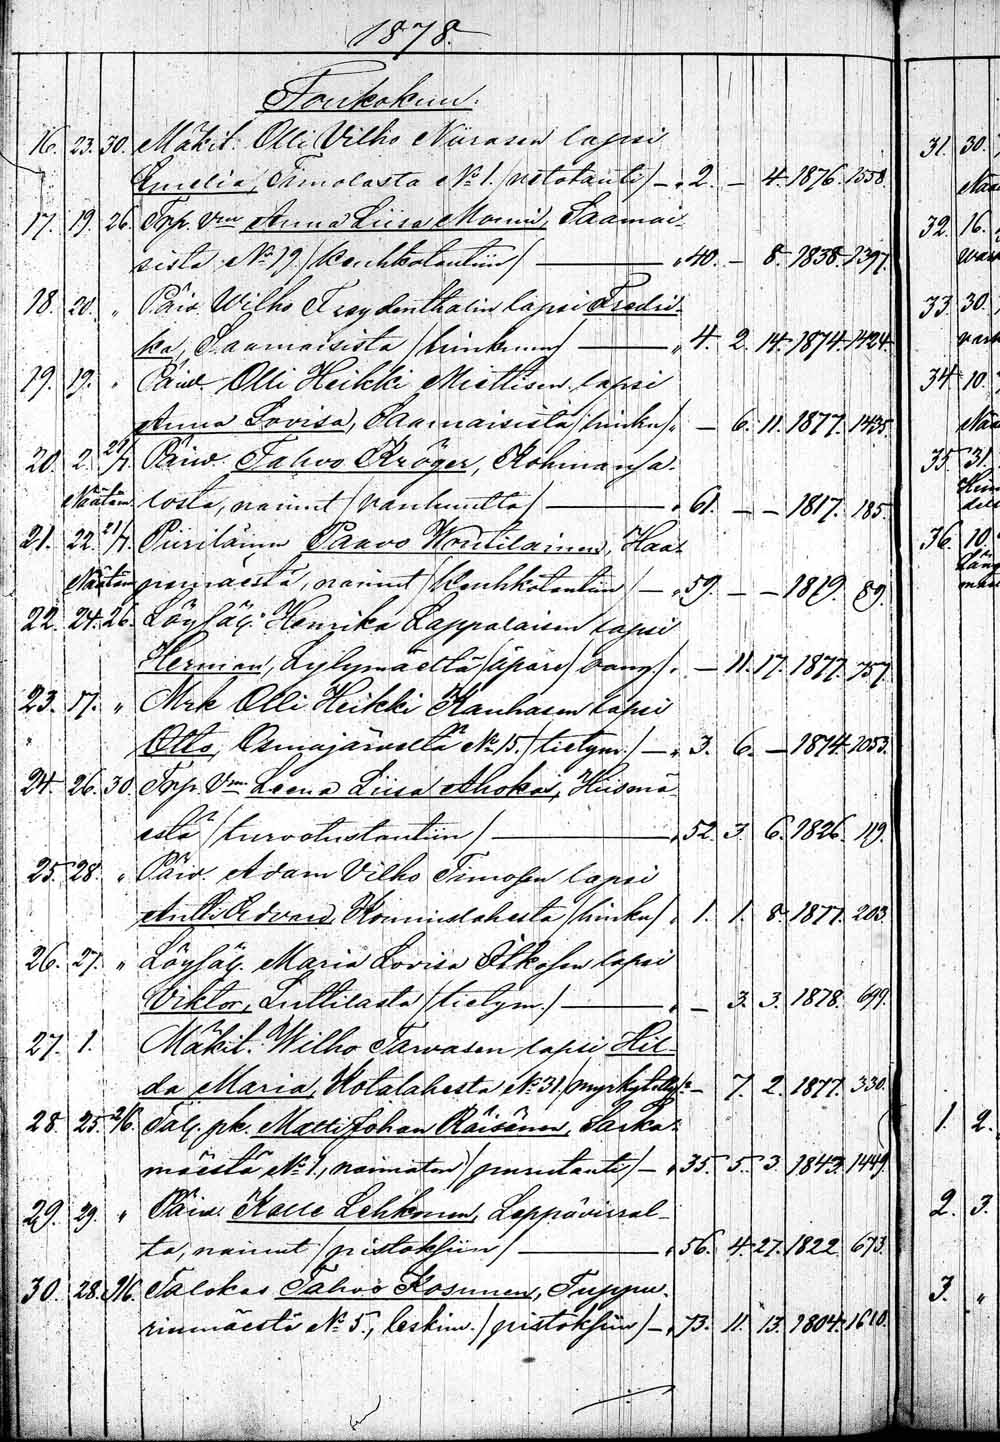 1878.
Toukokuu.
16. 23. 30. Mäkit. Olli Vilho Niirasen lapsi
Emelia, Timolasta No 1. /vetotauti/ — „ 2. — 4. 1876. 1558.
17. 19. 26. Trp. vm Anna Liisa Monni, Saamai-
sista No 19 /keuhkotautiin/ — „ 40. — 8. 1838. 1397.
18. 20. „ Päiv. Wilho Freydenthalin lapsi Fredri-
ka, Saamaisista / — „ 4. 2. 14. 1874. 1424.
19. 19. „ Päiv. Olli Heikki Miettisen lapsi
Anna Lovisa, Saamaisista /hinku/ „ — 6. 11. 1877. 1435.
20. 2. 21/7. Päiw. Tahvo Kröger, Kohmansa-
Näätam losta, nainut /vanhuutta/ — „ 61. — — 1817. 185.
21. 22. 21/7. Piiriläinn Paavo Woutilainen, Haa-
Näätam pamäestä, nainut /keuhkotautiin/ — „ 59. — — 1819. 89.
22. 24. 26. Löysäl. Henrika Lappalaisen lapsi
Herman, Lylymäeltä /äpäre/ „ — 11. 17. 1877. 757.
23. 17. „ Mrk Olli Heikki Kauhasen lapsi
„ Otto, Osmajärveltä No 15. /tietym./ — „ 3. 6. — 1874. 1053.
24. 26. 30. Trp. Vm Leena Liisa Ahoka, Hiismä-
estä /turvotustautiin/ — „ 52. 3. 6. 1826. 119.
25. 28. „ Päiv. Adam Vilho Timosen lapsi
Antti Edvard, Konnuslahesta /hinku/ „ 1. 1. 8. 1877. 203.
26. 27. „ Löysäl. Maria Lovisa Itkosen lapsi
Viktor, Luttilasta /tietym./ — „ — 3. 3. 1878. 699.
27. 1. Mäkit. Wilho Tarvasen lapsi Hil-
da Maria, Kotalahesta No 31 „ — 7. 2. 1877. 330.
28. 25. 2/6. Tal. pk. Matti Johan Räisänen, Sarka-
mäestä No 1, naimaton — „ 35. 5. 3. 1843. 1449.
29. 29. „ Päiv. Kalle Lehkonen, Leppävirral-
ta, nainut /pistoksiin/ — „ 56. 4. 27. 1822. 673.
30. 28. 9/6. Talokas Tahvo Kosunen, Tuppu-
rinmäestä No 5, leskim. /pistoksiin/ — „ 73. 11. 13. 1804. 1610.
31. 30.
32. 16.
33. 30.
34. 10.
35. 31.
36. 10.
1. 2.
2. 3.
3. „